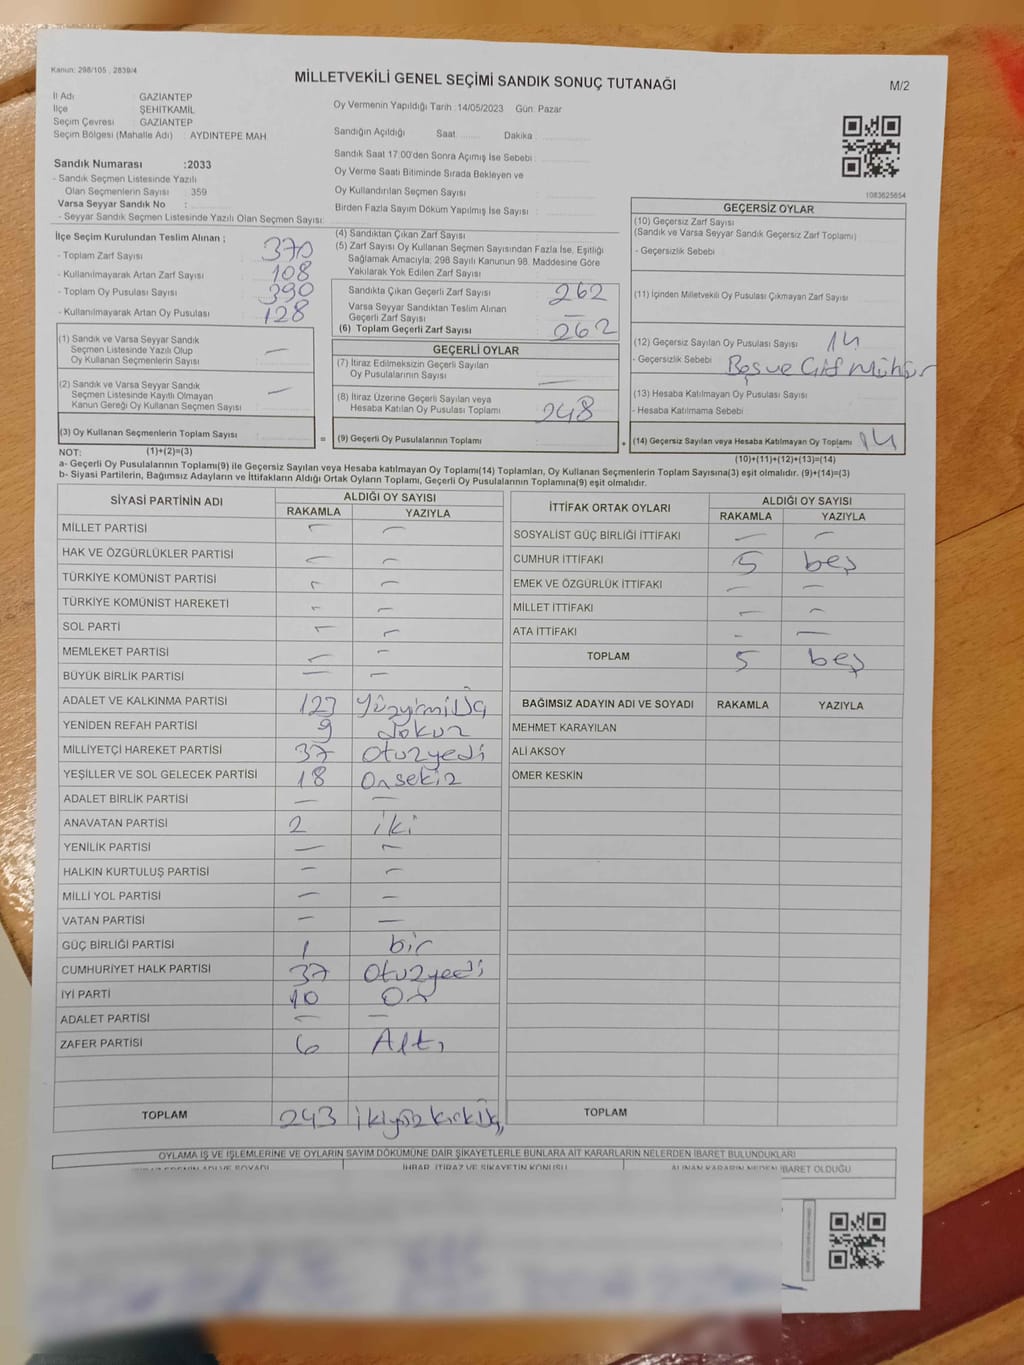 Kanun: 298/105 , 2839/4
MİLLETVEKİLİ GENEL SEÇİMİ SANDIK SONUÇ TUTANAĞI
M/2
İl Adı : GAZİANTEP
İlçe : ŞEHİTKAMİL
Seçim Çevresi : GAZİANTEP
Seçim Bölgesi (Mahalle Adı) : AYDINTEPE MAH.
Sandık Numarası :2033
- Sandık Seçmen Listesinde Yazılı
Olan Seçmenlerin Sayısı : 359
Varsa Seyyar Sandık No :
- Seyyar Sandık Seçmen Listesinde Yazılı Olan Seçmen Sayısı:
Oy Vermenin Yapıldığı Tarih :14/05/2023 Gün: Pazar
Sandığın Açıldığı Saat: Dakika:
Sandık Saat 17:00'den Sonra Açımış İse Sebebi :
Oy Verme Saati Bitiminde Sırada Bekleyen ve
Oy Kullandırılan Seçmen Sayısı :
Birden Fazla Sayım Döküm Yapılmış İse Sayısı :
1083625654
İlçe Seçim Kurulundan Teslim Alınan ;
- Toplam Zarf Sayısı : 370
- Kullanılmayarak Artan Zarf Sayısı : 108
- Toplam Oy Pusulası Sayısı : 390
- Kullanılmayarak Artan Oy Pusulası : 128
(1) Sandık ve Varsa Seyyar Sandık
Seçmen Listesinde Yazılı Olup
Oy Kullanan Seçmenlerin Sayısı : —
(2) Sandık ve Varsa Seyyar Sandık
Seçmen Listesinde Kayıtlı Olmayan
Kanun Gereği Oy Kullanan Seçmen Sayısı : —
(3) Oy Kullanan Seçmenlerin Toplam Sayısı :
(4) Sandıktan Çıkan Zarf Sayısı :
(5) Zarf Sayısı Oy Kullanan Seçmen Sayısından Fazla İse, Eşitliği
Sağlamak Amacıyla; 298 Sayılı Kanunun 98. Maddesine Göre
Yakılarak Yok Edilen Zarf Sayısı :
Sandıkta Çıkan Geçerli Zarf Sayısı : 262
Varsa Seyyar Sandıktan Teslim Alınan
Geçerli Zarf Sayısı : —
(6) Toplam Geçerli Zarf Sayısı : 262
GEÇERLİ OYLAR
(7) İtiraz Edilmeksizin Geçerli Sayılan
Oy Pusulalarının Sayısı : —
(8) İtiraz Üzerine Geçerli Sayılan veya
Hesaba Katılan Oy Pusulası Toplamı : 248
= (9) Geçerli Oy Pusulalarının Toplamı :
GEÇERSİZ OYLAR
(10) Geçersiz Zarf Sayısı :
(Sandık ve Varsa Seyyar Sandık Geçersiz Zarf Toplamı)
- Geçersizlik Sebebi :
(11) İçinden Milletvekili Oy Pusulası Çıkmayan Zarf Sayısı :
(12) Geçersiz Sayılan Oy Pusulası Sayısı : 14
- Geçersizlik Sebebi : Boş ve Çift mühür
(13) Hesaba Katılmayan Oy Pusulası Sayısı :
- Hesaba Katılmama Sebebi :
+ (14) Geçersiz Sayılan veya Hesaba Katılmayan Oy Toplamı : 14
NOT: (1)+(2)=(3)
(10)+(11)+(12)+(13)=(14)
a- Geçerli Oy Pusulalarının Toplamı(9) ile Geçersiz Sayılan veya Hesaba katılmayan Oy Toplamı(14) Toplamları, Oy Kullanan Seçmenlerin Toplam Sayısına(3) eşit olmalıdır. (9)+(14)=(3)
b- Siyasi Partilerin, Bağımsız Adayların ve İttifakların Aldığı Ortak Oyların Toplamı, Geçerli Oy Pusulalarının Toplamına(9) eşit olmalıdır.
SİYASİ PARTİNİN ADI
ALDIĞI OY SAYISI
RAKAMLA YAZIYLA
MİLLET PARTİSİ — —
HAK VE ÖZGÜRLÜKLER PARTİSİ — —
TÜRKİYE KOMÜNİST PARTİSİ — —
TÜRKİYE KOMÜNİST HAREKETİ — —
SOL PARTİ — —
MEMLEKET PARTİSİ — —
BÜYÜK BİRLİK PARTİSİ — —
ADALET VE KALKINMA PARTİSİ 123 Yüzyirmi Üç
YENİDEN REFAH PARTİSİ 9 dokuz
MİLLİYETÇİ HAREKET PARTİSİ 37 Otuzyedi
YEŞİLLER VE SOL GELECEK PARTİSİ 18 Onsekiz
ADALET BİRLİK PARTİSİ — —
ANAVATAN PARTİSİ 2 iki
YENİLİK PARTİSİ — —
HALKIN KURTULUŞ PARTİSİ — —
MİLLİ YOL PARTİSİ — —
VATAN PARTİSİ — —
GÜÇ BİRLİĞİ PARTİSİ 1 bir
CUMHURİYET HALK PARTİSİ 37 Otuzyedi
İYİ PARTİ 10 On
ADALET PARTİSİ — —
ZAFER PARTİSİ 6 Altı
TOPLAM 243 ikiyüz kırk Üç
İTTİFAK ORTAK OYLARI
ALDIĞI OY SAYISI
RAKAMLA YAZIYLA
SOSYALİST GÜÇ BİRLİĞİ İTTİFAKI — —
CUMHUR İTTİFAKI 5 beş
EMEK VE ÖZGÜRLÜK İTTİFAKI — —
MİLLET İTTİFAKI — —
ATA İTTİFAKI - —
TOPLAM 5 beş
BAĞIMSIZ ADAYIN ADI VE SOYADI RAKAMLA YAZIYLA
MEHMET KARAYILAN
ALİ AKSOY
ÖMER KESKİN
TOPLAM
OYLAMA İŞ VE İŞLEMLERİNE VE OYLARIN SAYIM DÖKÜMÜNE DAİR ŞİKAYETLERLE BUNLARA AİT KARARLARIN NELERDEN İBARET BULUNDUKLARI
İHBAR, İTİRAZ VE ŞİKAYETİN KONUSU
ALINAN KARARIN NEDEN İBARET OLDUĞU